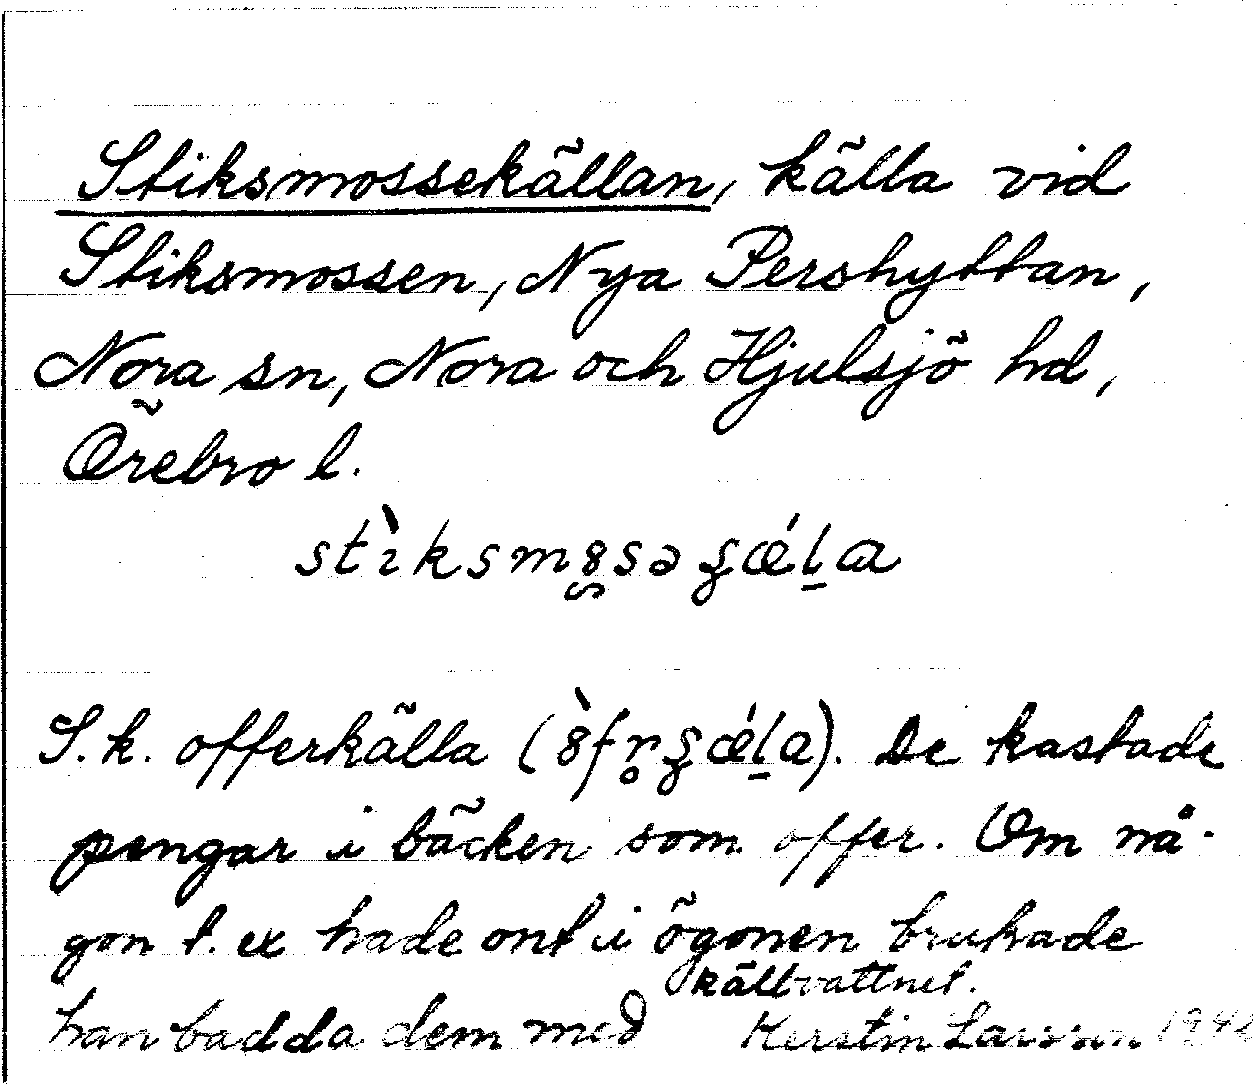 Stiksmossekällan, källa vid
Stiksmossen, Nya Pershyttan,
Nora sn, Nora och Hjulsjö hd,
Örebro l.
S.k. offerkälla. De kastade
pengar i bäcken som offer. Om nå-
gon t. ex hade ont i ögonen brukade
han badda dem med källvattnet.
Kerstin Larsson